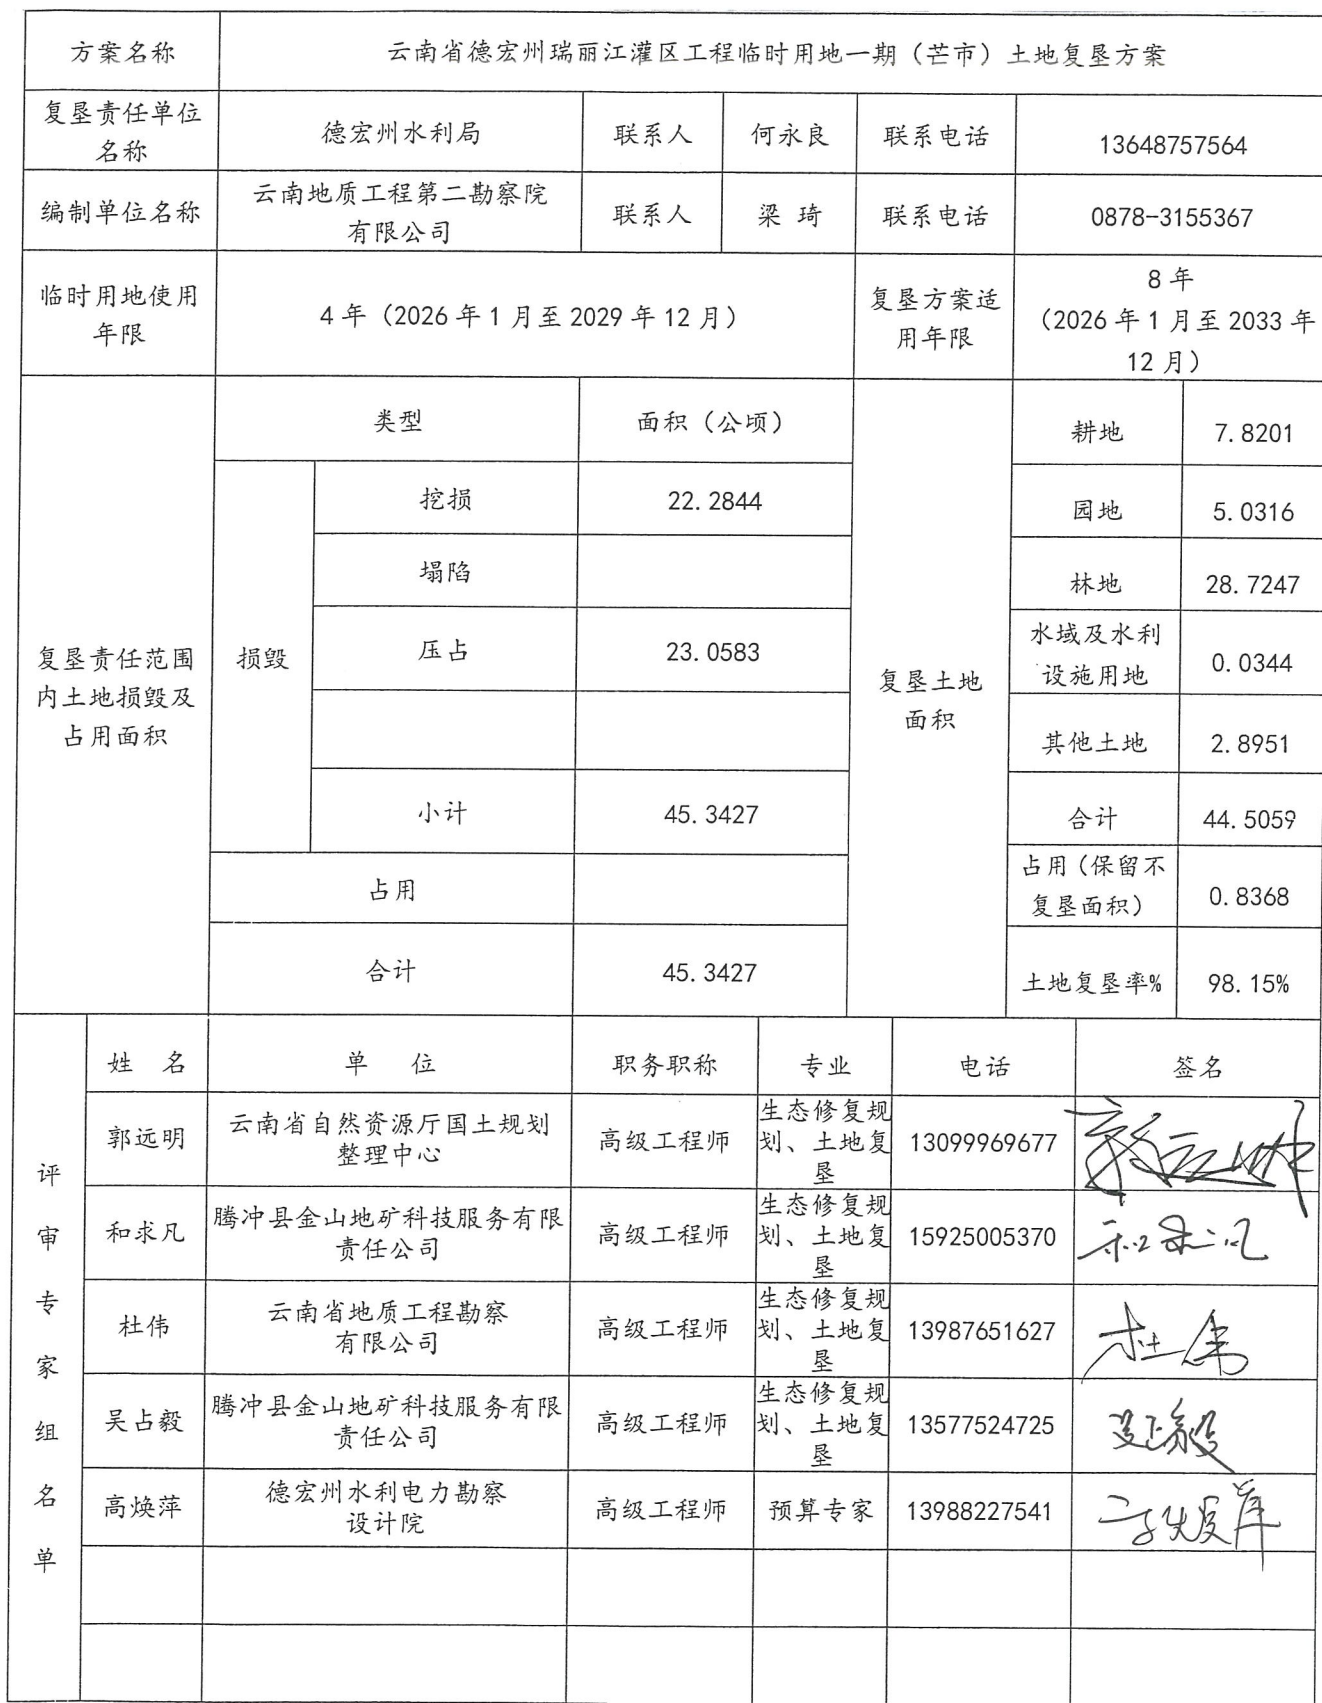 方案名称
云南省德宏州瑞丽江灌区工程临时用地一期（芒市）土地复垦方案
复垦责任单位
名称
德宏州水利局
联系人
何永良
联系电话
13648757564
编制单位名称
云南地质工程第二勘察院
有限公司
联系人
梁 琦
联系电话
0878-3155367
临时用地使用
年限
4年（2026年1月至2029年12月）
复垦方案适
用年限
8年
（2026年1月至2033年
12月）
复垦责任范围
内土地损毁及
占用面积
类型
面积（公顷）
损毁
挖损
22.2844
塌陷
压占
23.0583
小计
45.3427
占用
合计
45.3427
复垦土地
面积
耕地
7.8201
园地
5.0316
林地
28.7247
水域及水利
设施用地
0.0344
其他土地
2.8951
合计
44.5059
占用（保留不
复垦面积）
0.8368
土地复垦率%
98.15%
评
审
专
家
组
名
单
姓 名
单 位
职务职称
专业
电话
签名
郭远明
云南省自然资源厅国土规划
整理中心
高级工程师
生态修复规
划、土地复
垦
13099969677
郭远明
和求凡
腾冲县金山地矿科技服务有限
责任公司
高级工程师
生态修复规
划、土地复
垦
15925005370
和求凡
杜伟
云南省地质工程勘察
有限公司
高级工程师
生态修复规
划、土地复
垦
13987651627
杜伟
吴占毅
腾冲县金山地矿科技服务有限
责任公司
高级工程师
生态修复规
划、土地复
垦
13577524725
吴占毅
高焕萍
德宏州水利电力勘察
设计院
高级工程师
预算专家
13988227541
高焕萍